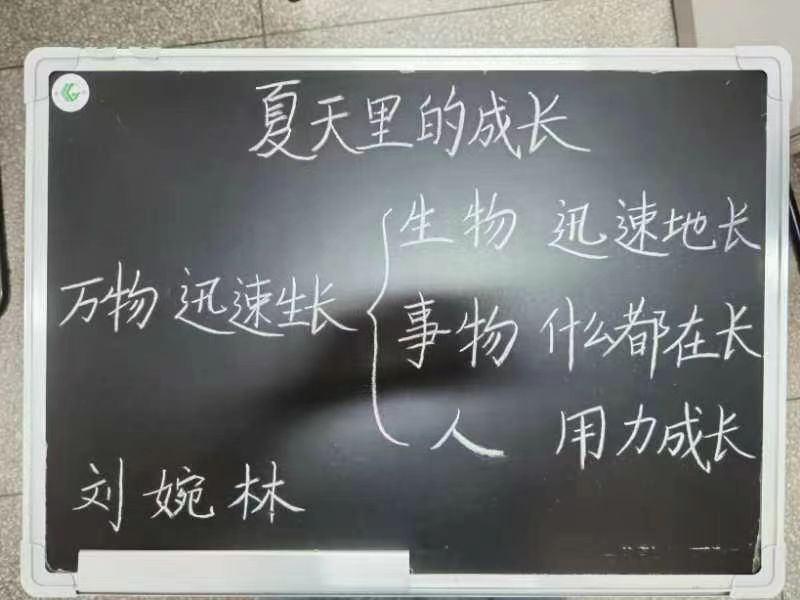 夏天里的成长
生物 迅速地长
万物 迅速生长
事物 什么都在长
人 用力成长
刘婉林